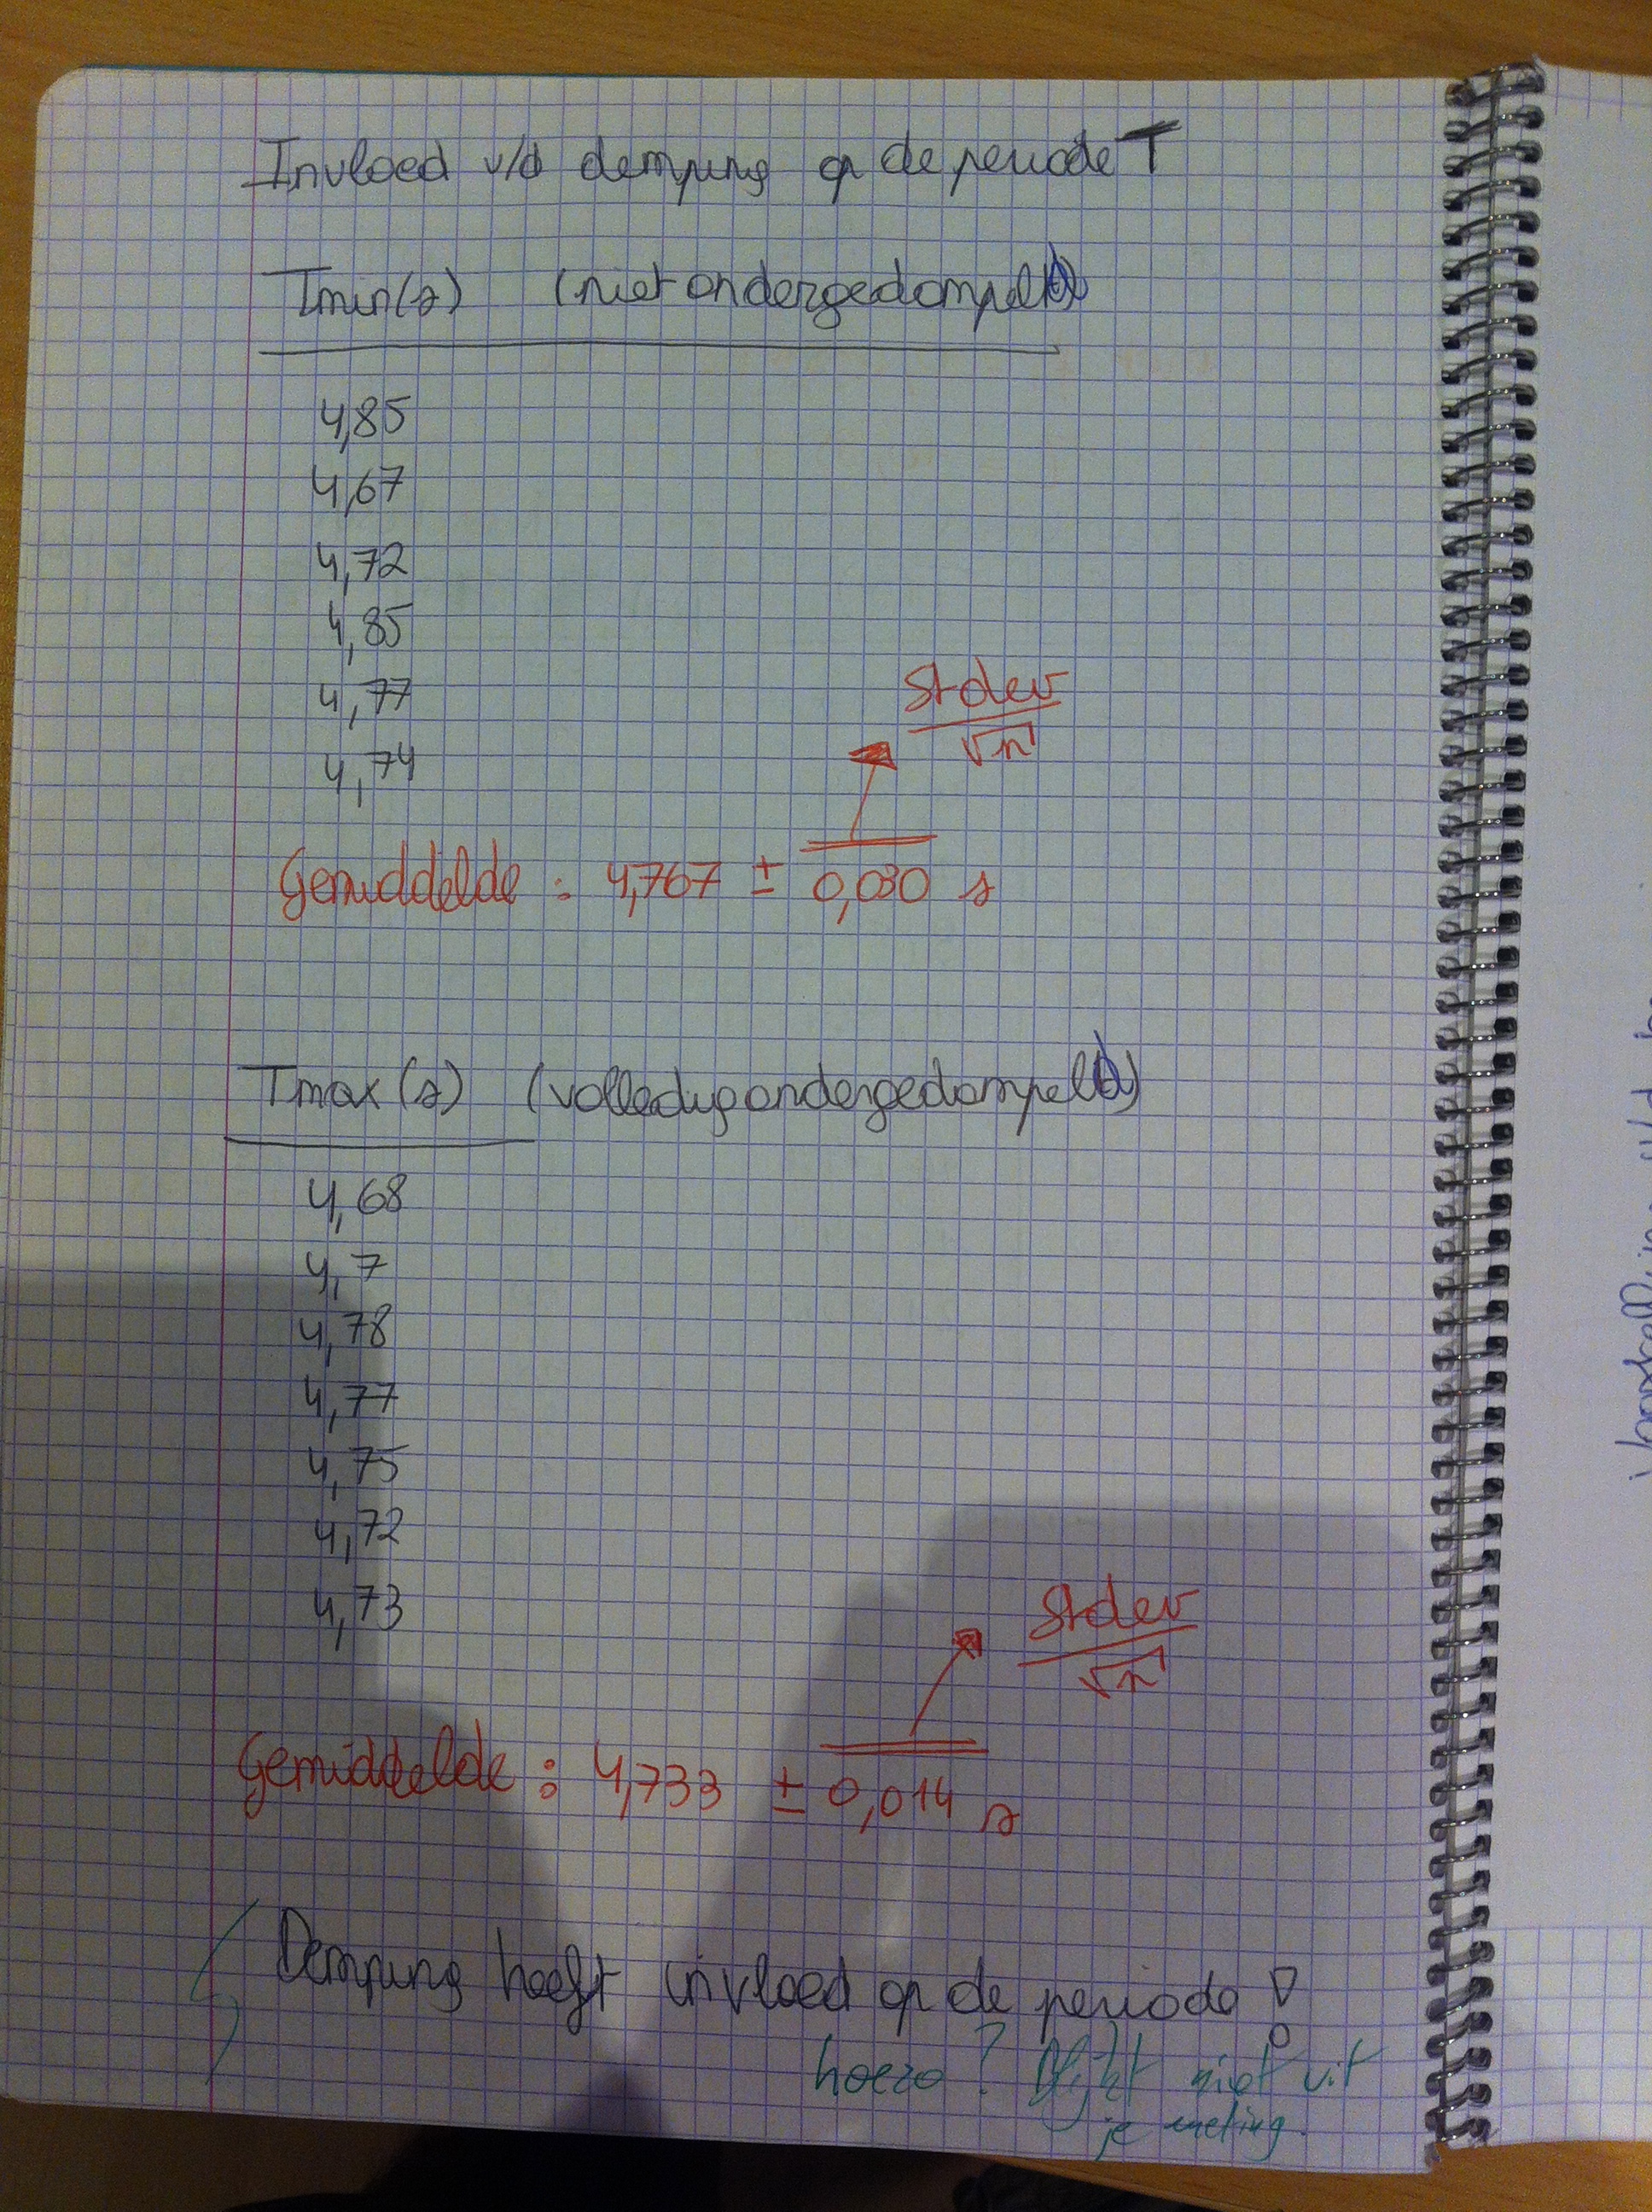 Invloed v/d demping op de periode T
Tmin(s) (niet ondergedompeld)
4,85
4,67
4,72
4,85
4,77
4,74
stdev
√n
Gemiddelde : 4,767 ± 0,030 s
Tmax(s) (volledig ondergedompeld)
4,68
4,7
4,78
4,77
4,75
4,72
4,73
stdev
√n
Gemiddelde : 4,733 ± 0,014 s
Demping heeft invloed op de periode !
hoezo? Blijkt niet uit
je meting.